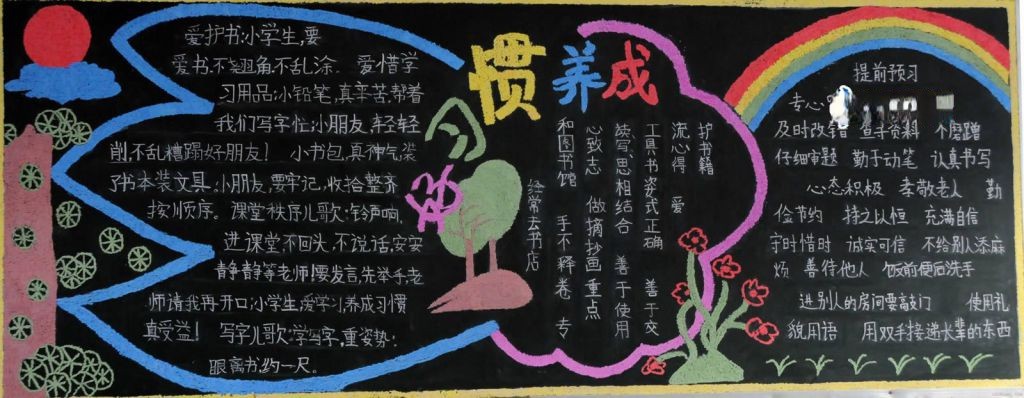 好习惯养成
爱护书:小学生,要
爱书.不翘角.不乱涂. 爱惜学
习用品:小铅笔,真辛苦,帮着
我们写字忙;小朋友,轻轻
削,不乱糟蹋好朋友! 小书包,真神气,装
了书本装文具;小朋友,要牢记,收拾整齐
按顺序。课堂秩序儿歌:铃声响,
进课堂,不回头,不说话,安安
静静等老师!要发言,先举手,老
师请我再开口;小学生,爱学习,养成习惯
真受益! 写字儿歌:学写字,重姿势:
眼离书,约一尺。
经常去书店
和图书馆 手不释卷 专
心致志 做摘抄画重点
读、思相结合 善于使用
工具书 姿式正确 善于交
流心得 爱
护书籍
提前预习
专心
及时改错 查寻资料 不磨蹭
仔细审题 勤于动笔 认真书写
心态积极 孝敬老人 勤
俭节约 持之以恒 充满自信
守时惜时 诚实可信 不给别人添麻
烦 善待他人 饭前便后洗手
进别人的房间要敲门 使用礼
貌用语 用双手接递长辈的东西